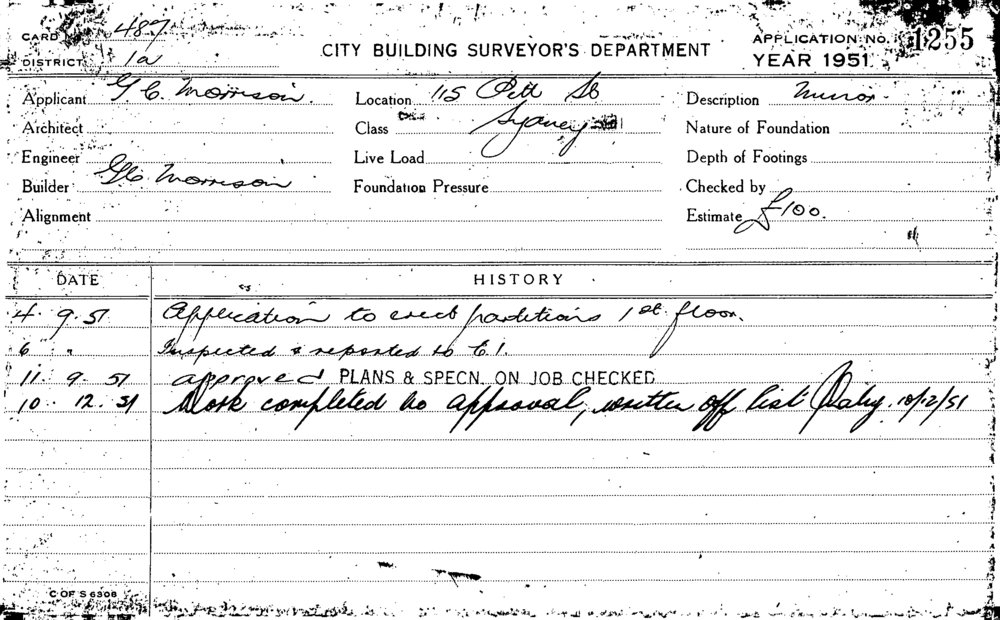 CARD No. 487
DISTRICT 1a
CITY BUILDING SURVEYOR'S DEPARTMENT
APPLICATION No. 1255
YEAR 1951
Applicant G C. Morrison.
Location 115 Pitt St
Description Minor
Architect
Class Sydney
Nature of Foundation
Engineer
Live Load
Depth of Footings
Builder G C Morrison
Foundation Pressure
Checked by
Alignment
Estimate £100.
DATE HISTORY
4. 9. 51 Application to erect partitions 1st. floor.
6 " Inspected & reported to C.I.
11. 9. 51 approved PLANS & SPECN. ON JOB CHECKED
10. 12. 51 Work completed to approval, written off list 10/12/51
C OF S 6308